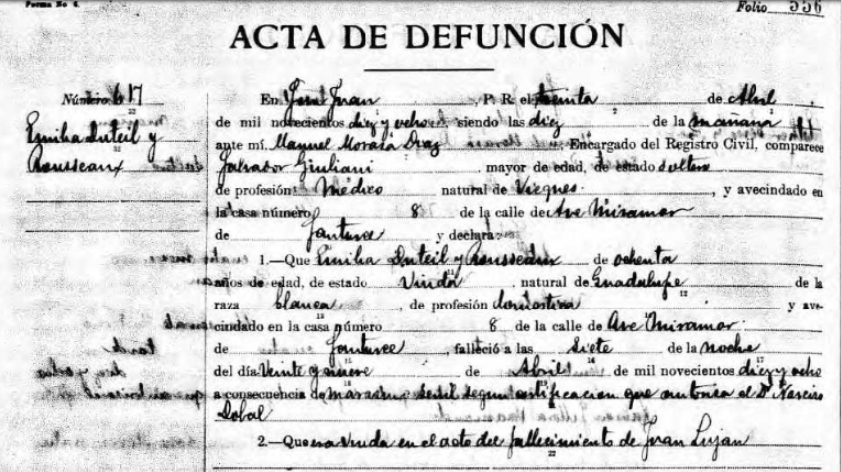 Forma No 4.
Folio 556
ACTA DE DEFUNCIÓN
Número 617
Emilia Duteil y
Rousseaux
En San Juan, P. R. el treinta de Abril
de mil novecientos diez y ocho siendo las diez de la mañana
ante mí. Manuel Moraza Diaz Encargado del Registro Civil, comparece
Salvador Giuliani mayor de edad, de estado soltero
de profesión: Médico natural de Vieques, y avecindado en
la casa número 8 de la calle de Ave Miramar
de Santurce y declara:
1.—Que Emilia Duteil y Rousseaux de ochenta
años de edad, de estado Viuda, natural de Guadalupe de la
raza blanca, de profesión domestica y ave-
cindado en la casa número 8 de la calle de Ave Miramar.
de Santurce, falleció a las siete de la noche
del día Veinte y nueve de Abril de mil novecientos diez y ocho
a consecuencia de marasmo senil segun certificacion que autoriza el Dr. Narciso
Dobal
2.—Que era viuda en el acto del fallecimiento de Juan Lujan